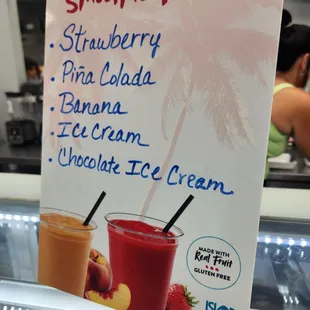 Smoothies
• Strawberry
• Piña Colada
• Banana
• Ice Cream
• Chocolate Ice Cream
MADE WITH
Real Fruit
GLUTEN FREE